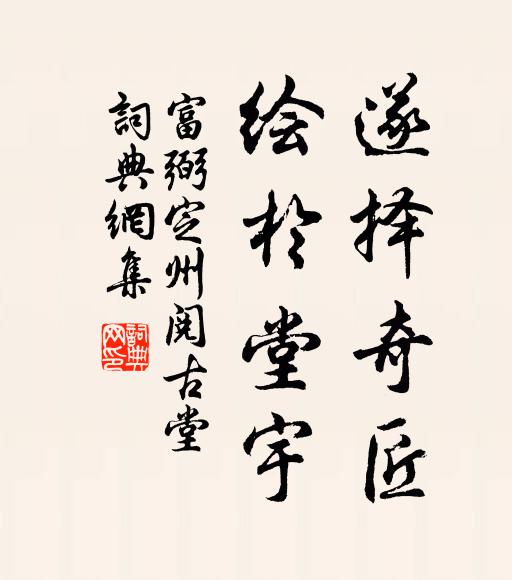 遂择奇匠
绘於堂宇
富弼定州阅古堂
詞典網集
詞典网印